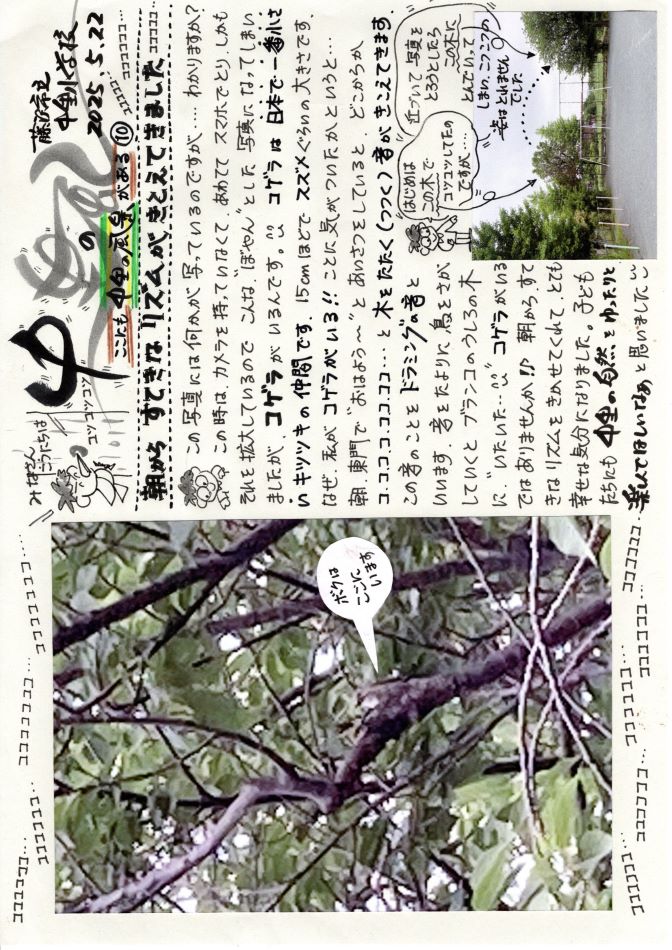 みなさん
こっちだよ
コッコッコッ
藤沢市立
中里小学校
2025.5.22
ここにも 中里の風景がある⑩
朝から すてきなリズムが きこえてきました
この写真には 何かが 写っているのですが…. わかりますか?
この時は. カメラを 持っていなくて. あわてて スマホでとり. しかも
それを拡大しているので こんな“ぼやん”とした 写真に なってしまい
ましたが. コゲラが いるんです。 コゲラは 日本で一番小さ
い キツツキの仲間です. 15cmほどで スズメぐらいの 大きさです.
なぜ 私が コゲラがいる!! ことに 気がついたか というと…
朝. 東門で “おはよう〜”と あいさつをしていると. どこからか
コ. コココココココ… と 木を たたく(つつく) 音が きこえてきます.
この音のことを ドラミングの音と
いいます. 音をたよりに 鳥をさが
していくと ブランコのうしろの木
に“いたいた…” コゲラがいる
ではありませんか!? 朝から すて
きなリズムを きかせてくれて とても
幸せな気分になりました。 子ども
たちにも 中里の自然を ゆったりと
楽しんでほしいなぁ と 思いました
はじめは
この木で
コツコツしてたの
ですが…
近づいて 写真を
とろうとしたら
この木に
とんでいって
しまい. こっこっの
姿は とれません
でした
ボクは
ここに
います